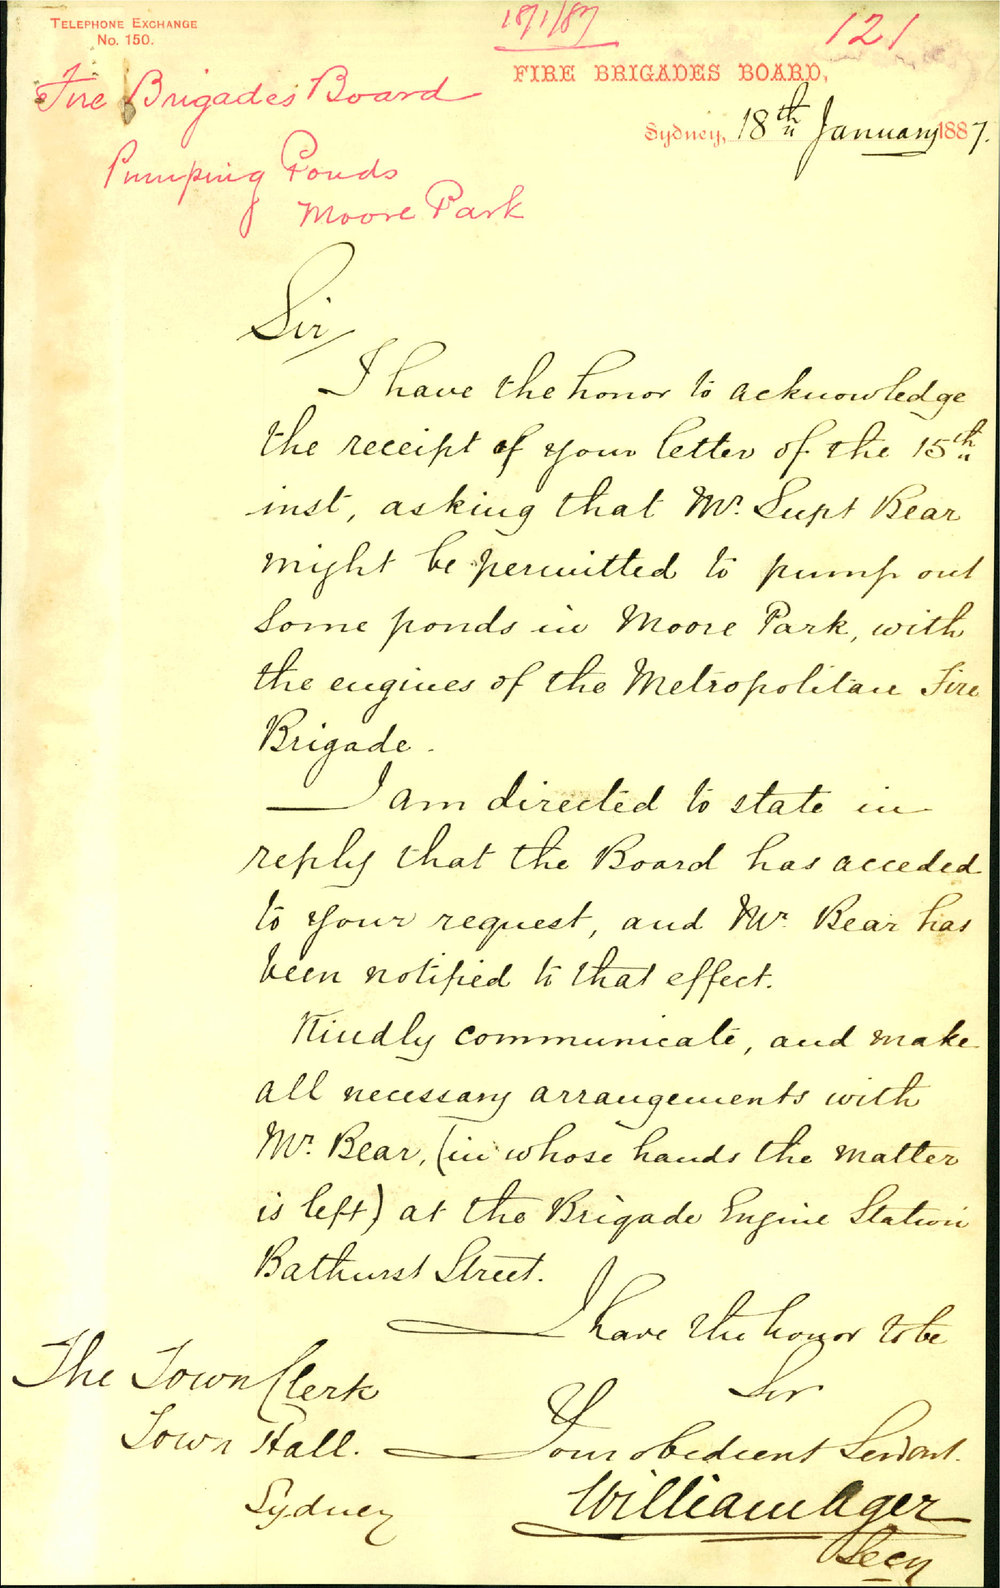 TELEPHONE EXCHANGE
No. 150.
18/1/87
121
FIRE BRIGADES BOARD,
Sydney, 18th January 1887.
Fire Brigades Board
Pumping Ponds
Moore Park
Sir,
I have the honor to acknowledge
the receipt of your letter of the 15th
inst, asking that Mr. Supt Bear
might be permitted to pump out
some ponds in Moore Park, with
the engines of the Metropolitan Fire
Brigade.
I am directed to state in
reply that the Board has acceded
to your request, and Mr. Bear has
been notified to that effect.
Kindly communicate, and make
all necessary arrangements with
Mr. Bear, (in whose hands the matter
is left) at the Brigade Engine Station
Bathurst Street.
I have the honor to be
Sir
Your obedient Servant.
William Ager
Secy
The Town Clerk
Town Hall.
Sydney